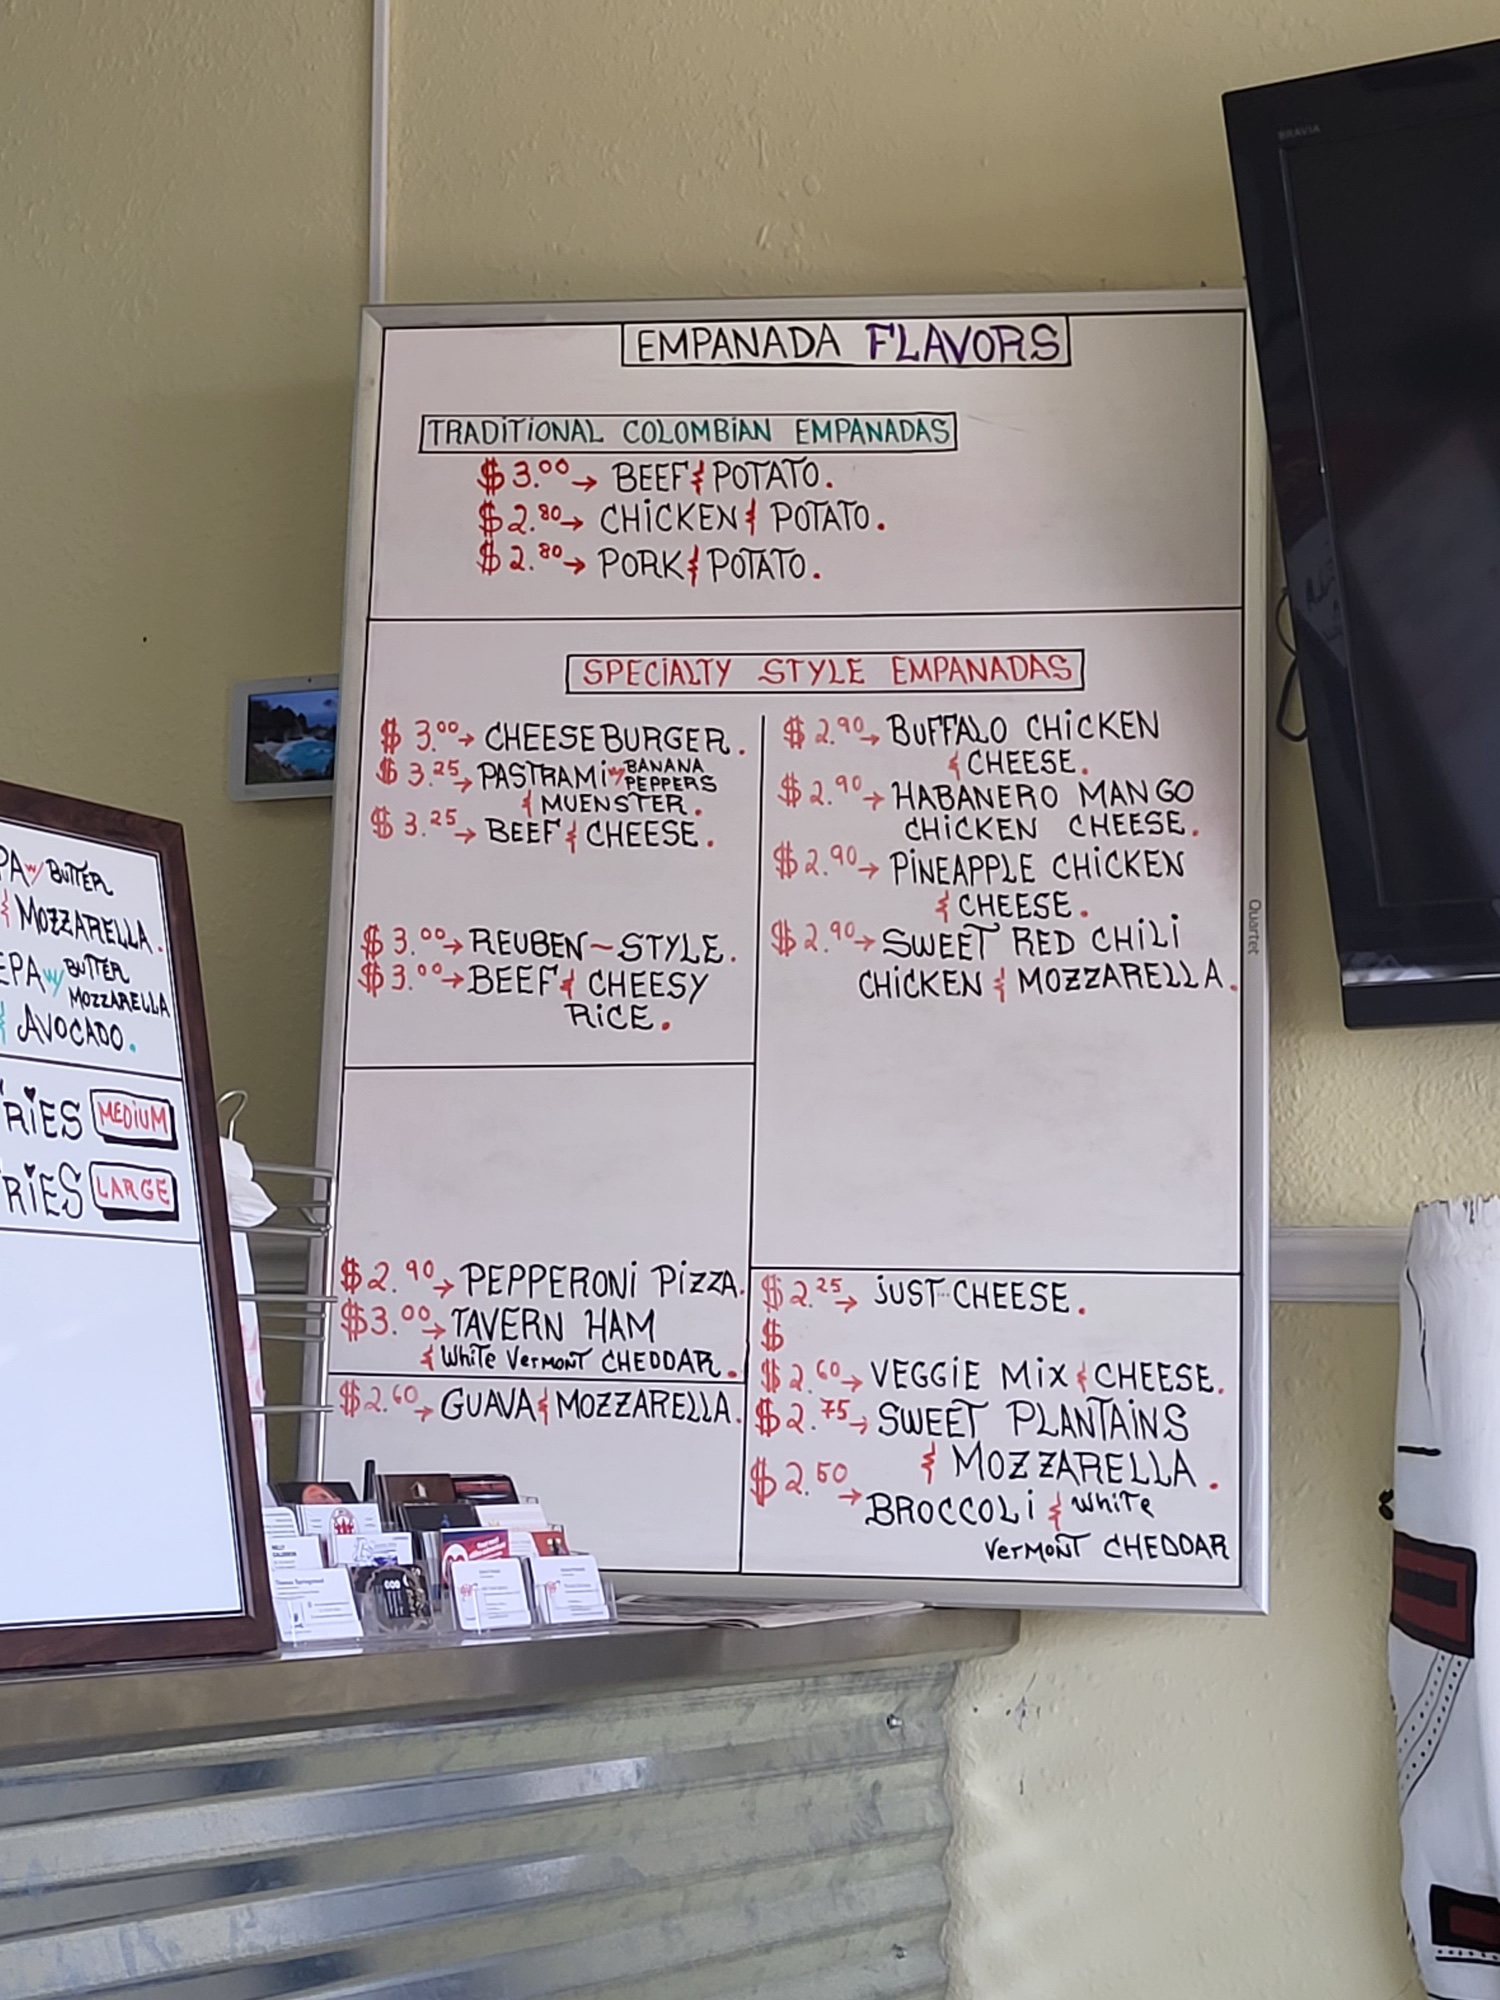 EMPANADA FLAVORS
TRADiTiONAL COLOMBiAN EMPANADAS
$3.00→ BEEF & POTATO.
$2.80→ CHiCKEN & POTATO.
$2.80→ PORK & POTATO.
SPECiALTY STYLE EMPANADAS
$3.00→ CHEESEBURGER.
$3.25→ PASTRAMi w/ BANANA
PEPPERS
& MUENSTER.
$3.25→ BEEF & CHEESE.
$3.00→ REUBEN~STYLE.
$3.00→ BEEF & CHEESY
RiCE.
$2.90→ PEPPERONi PiZZA.
$3.00→ TAVERN HAM
& White VerMONT CHEDDAR.
$2.60→ GUAVA & MOZZARELLA.
$2.90→ BUFFALO CHiCKEN
& CHEESE.
$2.90→ HABANERO MANGO
CHiCKEN CHEESE.
$2.90→ PiNEAPPLE CHiCKEN
& CHEESE.
$2.90→ SWEET RED CHiLi
CHiCKEN & MOZZARELLA.
$2.25→ jUST CHEESE.
$
$2.60→ VEGGiE MiX & CHEESE.
$2.75→ SWEET PLANTAiNS
& MOZZARELLA.
$2.50→ BROCCOLi & WhiTe
VerMONT CHEDDAR
Quartet
BRAVIA
PA w/ BUTTER
& MOZZARELLA.
EPA w/ BUTTER
MOZZARELLA
& AVOCADO.
RiES MEDiUM
RiES LARGE